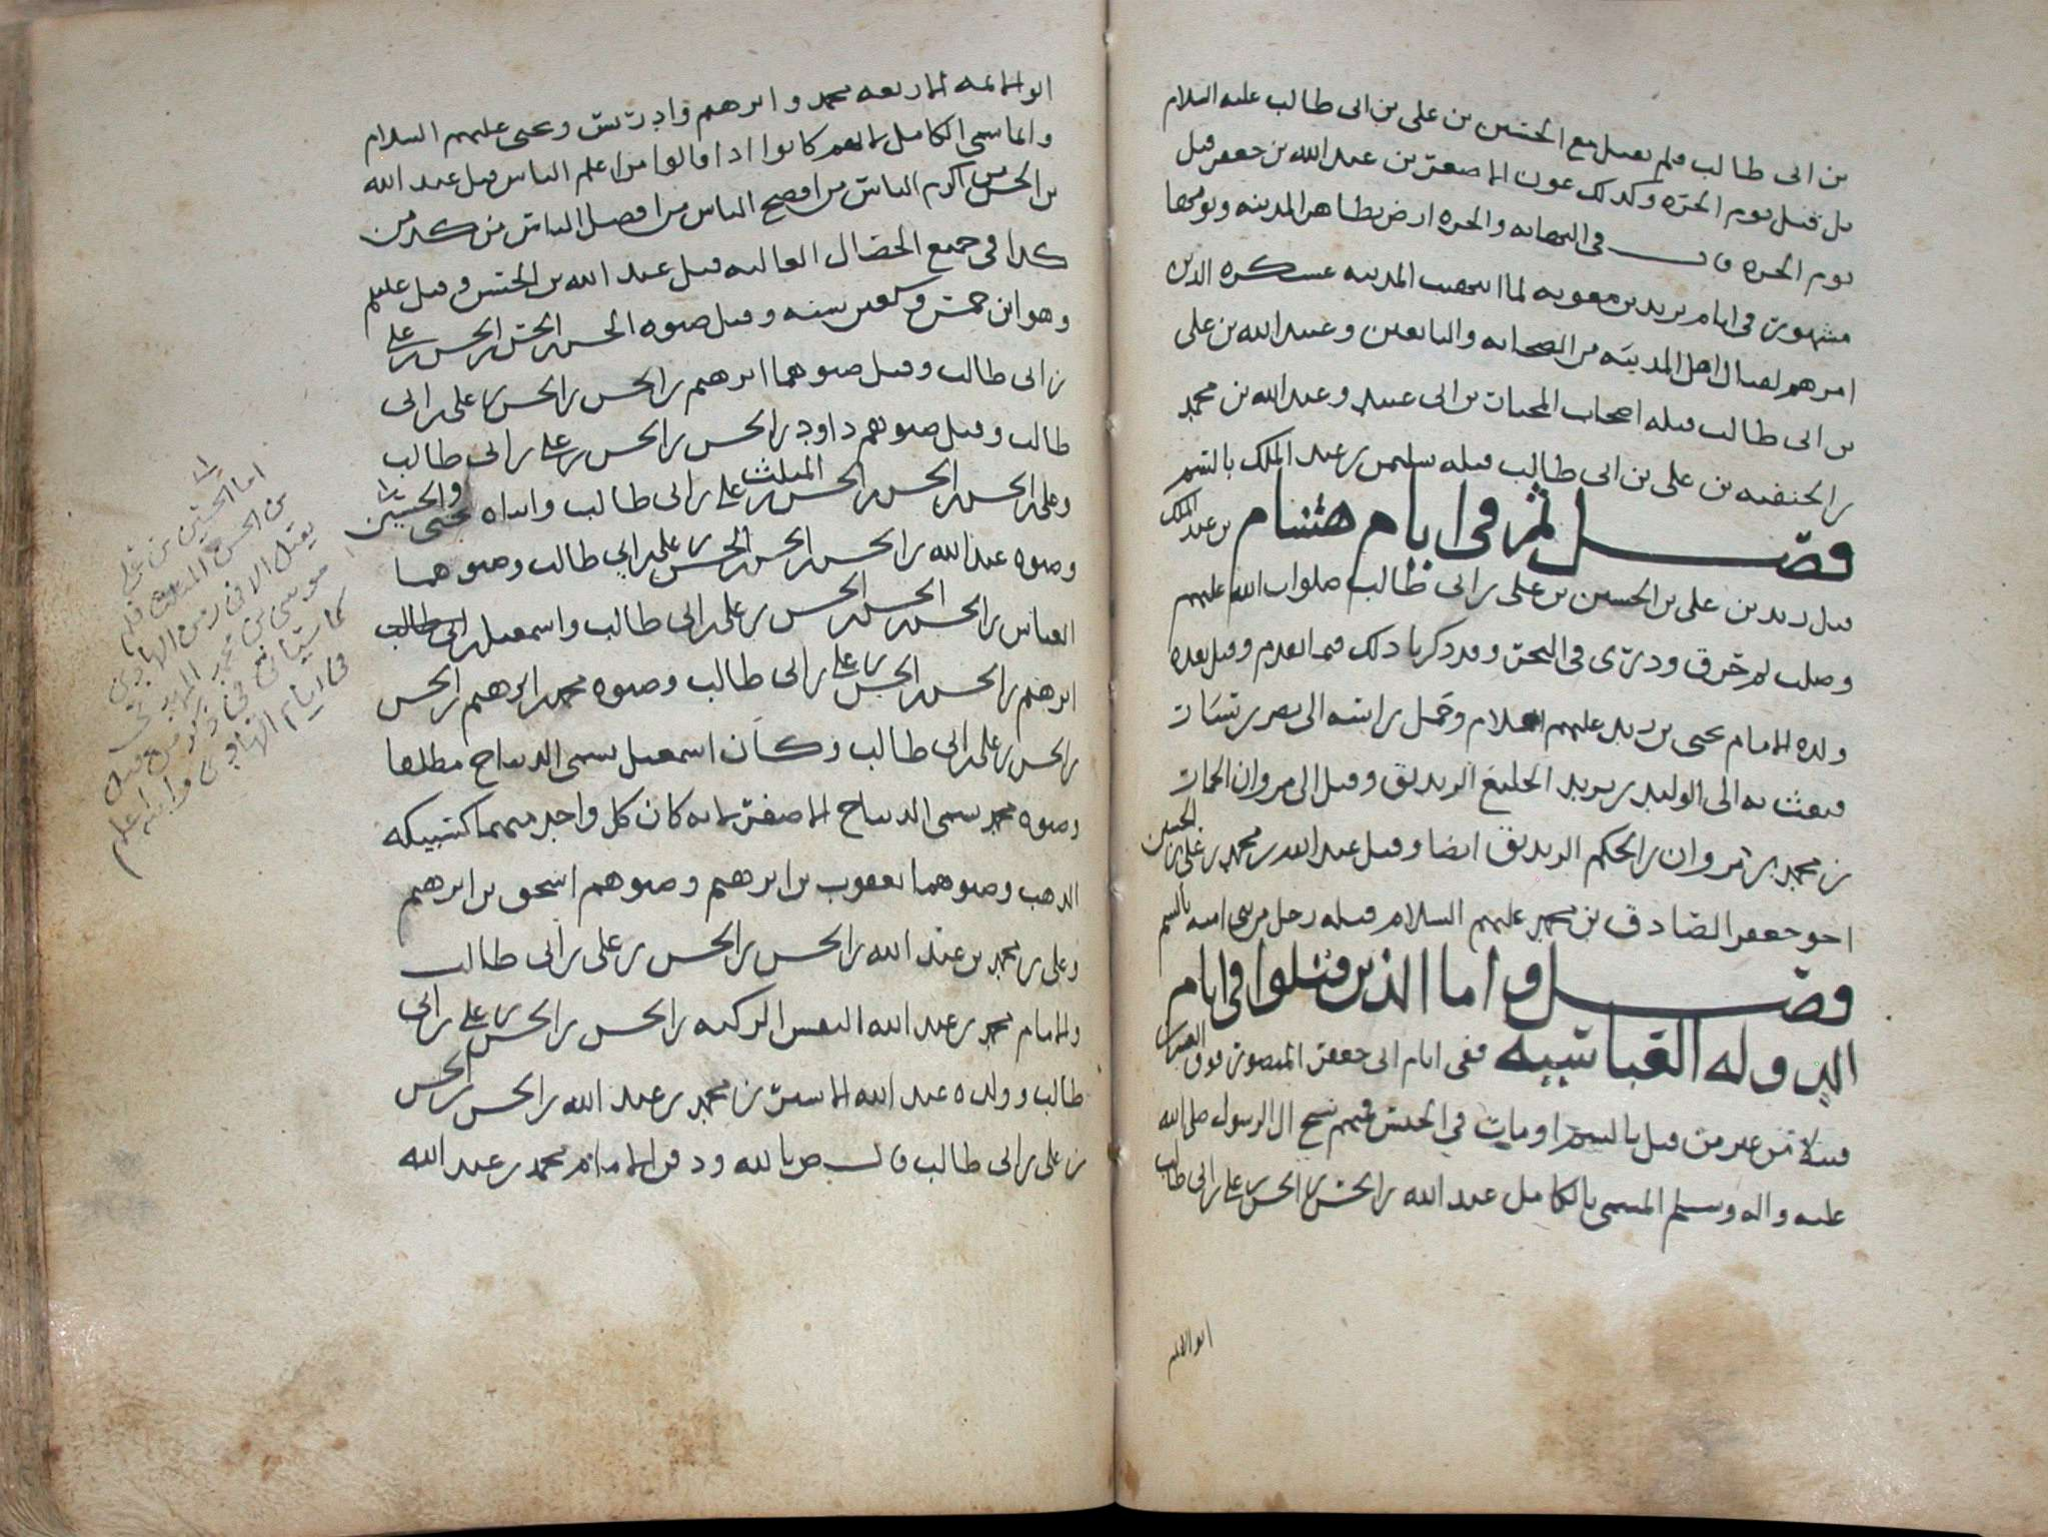 بن ابى طالب فلم يقتل مع الحسين بن على بن ابى طالب عليه السلام
بل قتل يوم الحره وكذلك عون الاصغر بن عبد الله بن جعفر قتل
يوم الحره قال فى النهايه والحره ارض بظاهر المدينه ويومها
مشهور فى ايام يزيد بن معويه لما المدينه عسكره الذين
امرهم لقتال اهل المدينه من الصحابه والتابعين وعبيد الله بن على
بن ابى طالب قتله اصحاب المختار بن ابى عبيد وعبد الله بن محمد
بن الحنفيه بن على بن ابى طالب قتله سليمن بن عبد الملك بالسم
فصل ثم فى ايام هشام بن عبد الملك
قتل زيد بن على بن الحسين بن على بن ابى طالب صلوات الله عليهم
وصلب ثم حرق وذرى فى البحر وقد ذكرنا ذلك فيما تقدم وقتل بعده
ولده الامام يحيى بن زيد عليهم السلام وحمل راسه الى نصر بن سيار
فبعث به الى الوليد بن يزيد الخليع الزنديق وقيل الى مروان الحمار
بن محمد بن مروان بن الحكم الزنديق ايضا وقتل عبد الله بن محمد بن على بن الحسين
اخو جعفر الصادق بن محمد عليهم السلام قتله رجل من بنى اميه بالسم
فصل واما الذين قتلوا فى ايام
الدوله العباسيه ففى ايام ابى جعفر المنصور فوق العشرين
قتيلا من غير من قتل بالسم او مات فى الحبس فمنهم شيخ ال الرسول صلى الله
عليه واله وسلم المسمى بالكامل عبد الله بن الحسن بن الحسن بن على بن ابى طالب
ابو الائمه
ابو الائمه الاربعه محمد وابرهيم وادريس ويحيى عليهم السلام
وانما سمى الكامل لانهم كانوا اذا قالوا من اعلم الناس قيل عبد الله
بن الحسن من اكرم الناس من افصح الناس من افضل الناس من كذا من
كذا فى جميع الخصال العاليه قيل عبد الله بن الحسن وقتل عليلم
وهو ابن خمس وسبعين سنه وقتل صنوه الحسن بن الحسن بن الحسن بن على
بن ابى طالب وقتل صنوهما ابرهيم بن الحسن بن الحسن بن على بن ابى
طالب وقتل صنوهم داود بن الحسن بن الحسن بن على بن ابى طالب
وعلى بن الحسن بن الحسن بن الحسن المثلث بن على بن ابى طالب وابناه يحيى والحسين
وصنوه عبد الله بن الحسن بن الحسن بن الحسن بن على بن ابى طالب وصنوهما
العباس بن الحسن بن الحسن بن الحسن بن على بن ابى طالب واسمعيل بن ابى طالب
ابرهيم بن الحسن بن الحسن بن على بن ابى طالب وصنوه محمد بن ابرهيم بن الحسن
بن الحسن بن على بن ابى طالب وكان اسمعيل يسمى الديباج مطلقا
وصنوه محمد يسمى الديباج الاصغر لانه كان كل واحد منهما كسبيكه
الذهب وصنوهما يعقوب بن ابرهيم وصنوهم اسحق بن ابرهيم
وعلى بن محمد بن عبد الله بن الحسن بن الحسن بن على بن ابى طالب
والامام محمد بن عبد الله النفس الزكيه بن الحسن بن الحسن بن على بن ابى
طالب وولده عبد الله الاشتر بن محمد بن عبد الله بن الحسن بن الحسن
بن على بن ابى طالب قال ص بالله ودفن الامام محمد بن عبد الله
اما الحسين بن على
بن الحسن المثلث فلم
يقتل الا فى زمن الهادى
موسى بن محمد المهدى
كما سياتى فى ذكر من قتل
فى ايام الهادى والله اعلم